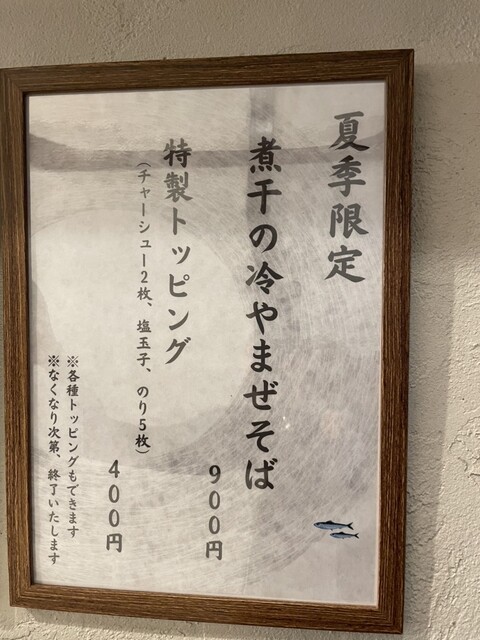 夏季限定
煮干の冷やまぜそば
900円
特製トッピング
(チャーシュー2枚、塩玉子、のり5枚)
400円
※各種トッピングもできます
※なくなり次第、終了いたします